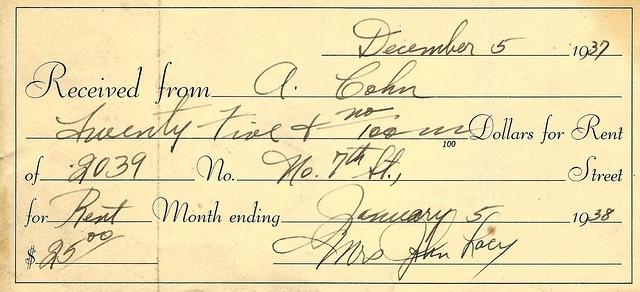 December 5 1937
Received from A. Cohn
Twenty Five & no/100 Dollars for Rent
100
of 2039 No. No. 7th St., Street
for Rent Month ending January 5 1938
$ 25 00 Mrs John